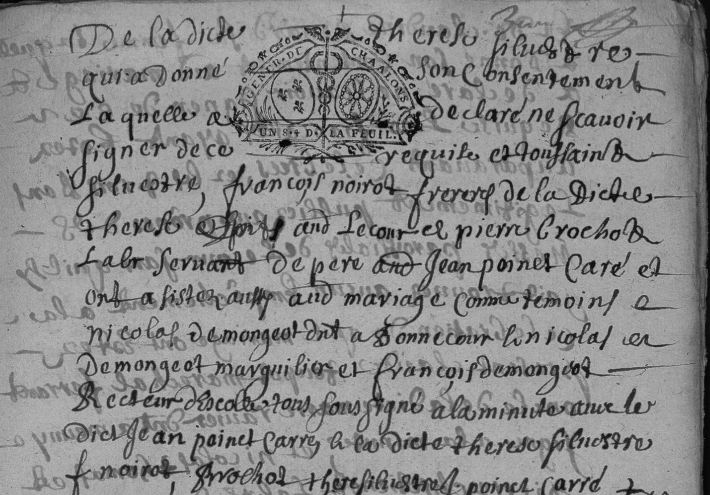 De la dicte therese siluestre
qui a donné son Consentement
Laquelle a declaré ne scauoir
GENER. DE CHAALONS
UN S. 4 D. LA FEUIL.
signer de ce requise et toussaint
siluestre, françois noirot freres de la Dicte
therese and Lecour et pierre brochot
servant de pere and Jean poinct Caré et
ont asister aussy aud mariage comme temoins
nicolas demongeot a Bonnecour nicolas
Demongeot marguilier et françois demongeot
Recteur descole tous soussigné a la minute auec le
dict Jean poinct Carre la dicte therese siluestre
f noirot, Brochot poinct Carré